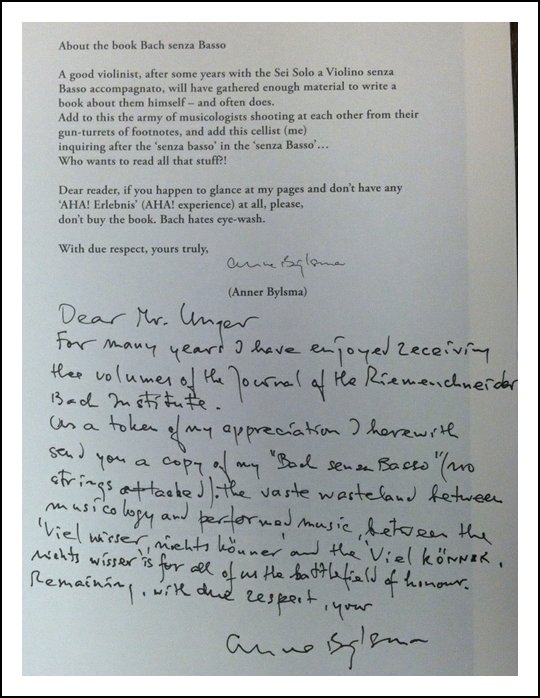 About the book Bach senza Basso
A good violinist, after some years with the Sei Solo a Violino senza
Basso accompagnato, will have gathered enough material to write a
book about them himself – and often does.
Add to this the army of musicologists shooting at each other from their
gun-turrets of footnotes, and add this cellist (me)
inquiring after the ‘senza basso’ in the ‘senza Basso’…
Who wants to read all that stuff?!
Dear reader, if you happen to glance at my pages and don’t have any
‘AHA! Erlebnis’ (AHA! experience) at all, please,
don’t buy the book. Bach hates eye-wash.
With due respect, yours truly,
Anner Bylsma
(Anner Bylsma)
Dear Mr. Unger
For many years I have enjoyed receiving
thee volumes of the Journal of the Riemenschneider
Bach Institute.
As a token of my appreciation I herewith
send you a copy of my "Bach senza Basso" (no
strings attached). The vaste wasteland between
musicology and performed music, between the
'Viel wisser, nichts könner' and the 'Viel KÖNNER,
nichts wisser' is for all of us the battlefield of honour.
Remaining, with due respect, your
Anner Bylsma